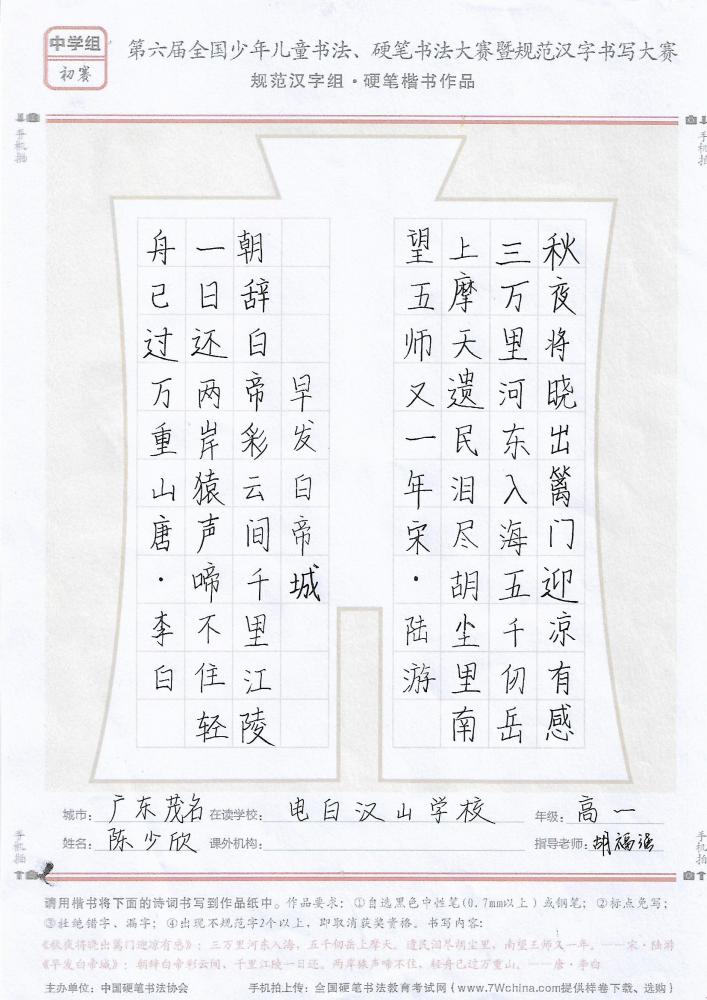 中学组
初赛
第六届全国少年儿童书法、硬笔书法大赛暨规范汉字书写大赛
规范汉字组·硬笔楷书作品
手机拍
手机拍
秋夜将晓出篱门迎凉有感
三万里河东入海五千仞岳
上摩天遗民泪尽胡尘里南
望五师又一年宋·陆游
早发白帝城
朝辞白帝彩云间千里江陵
一日还两岸猿声啼不住轻
舟已过万重山唐·李白
城市：广东茂名 在读学校：电白汉山学校 年级：高一
姓名：陈少欣 课外机构： 指导老师：胡福强
手机拍
手机拍
请用楷书将下面的诗词书写到作品纸中。作品要求：①自选黑色中性笔(0.7mm以上)或钢笔；②标点免写；
③杜绝错字、漏字；④出现不规范字2个以上，即取消获奖资格。书写内容：
《秋夜将晓出篱门迎凉有感》：三万里河东入海，五千仞岳上摩天。遗民泪尽胡尘里，南望王师又一年。——宋·陆游
《早发白帝城》：朝辞白帝彩云间，千里江陵一日还。两岸猿声啼不住，轻舟已过万重山。——唐·李白
主办单位：中国硬笔书法协会 手机拍上传：全国硬笔书法教育考试网{www.7Wchina.com提供样卷下载、选购}